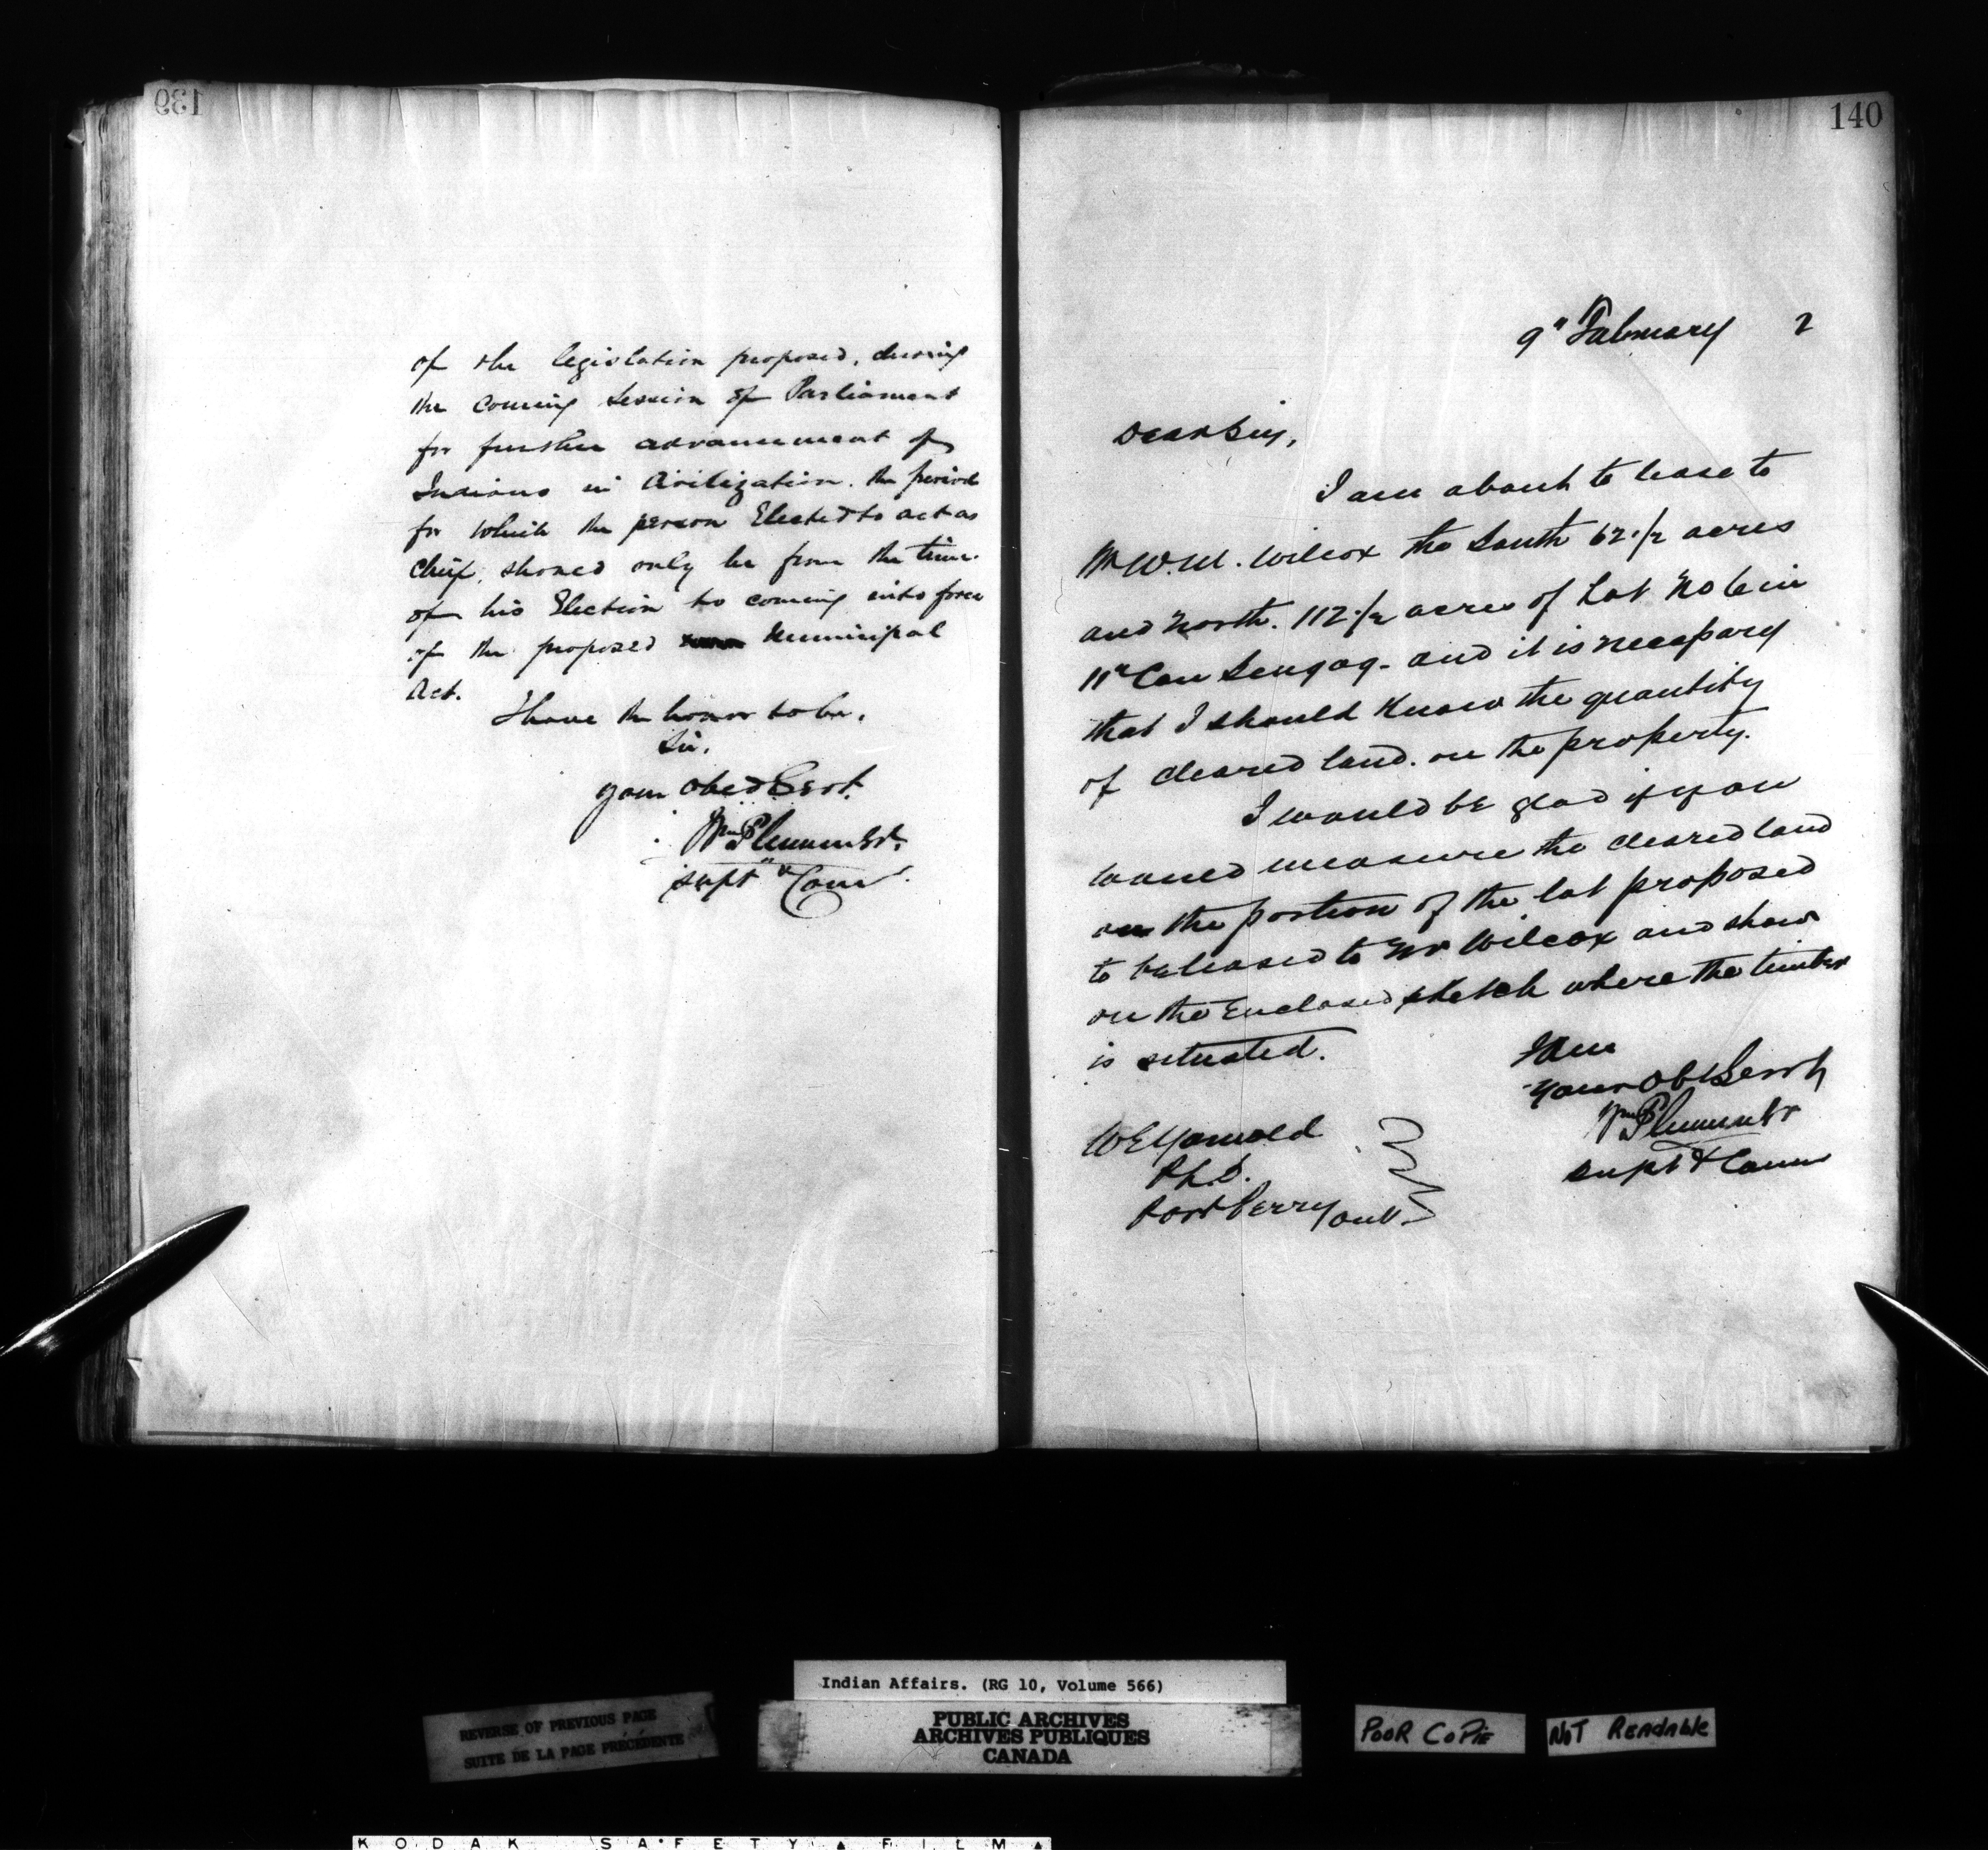 139
of the legislation proposed, during
the coming Session of Parliament
for further advancement of
Indians in Civilization. the period
for which the person Elected to act as
Chief, should only be from the time
of his Election to coming into force
of the proposed Municipal
Act.
I have the honor to be,
Sir,
your obed Servt.
Wm Plummer.
Supt & Comr.
140
9th February 2
Dear Sir,
I am about to lease to
Mr W.M. Wilcox the South 62 1/2 acres
and North. 112 1/2 acres of Lot No 6 in
11th Con Scugog. and it is necessary
that I should know the quantity
of cleared land. on the property.
I would be glad if you
would measure the cleared land
on the portion of the lot proposed
to be leased to Mr Wilcox and show
on the Enclosed sketch where the timber
is situated.
I am
your Obt Servt
Wm Plummer
Supt & Comr
W E Yarnold
P.L.S.
Port Perry Ont.
Indian Affairs. (RG 10, Volume 566)
REVERSE OF PREVIOUS PAGE
SUITE DE LA PAGE PRÉCÉDENTE
PUBLIC ARCHIVES
ARCHIVES PUBLIQUES
CANADA
POOR COPIE
NOT READABLE
KODAK SAFETY FILM